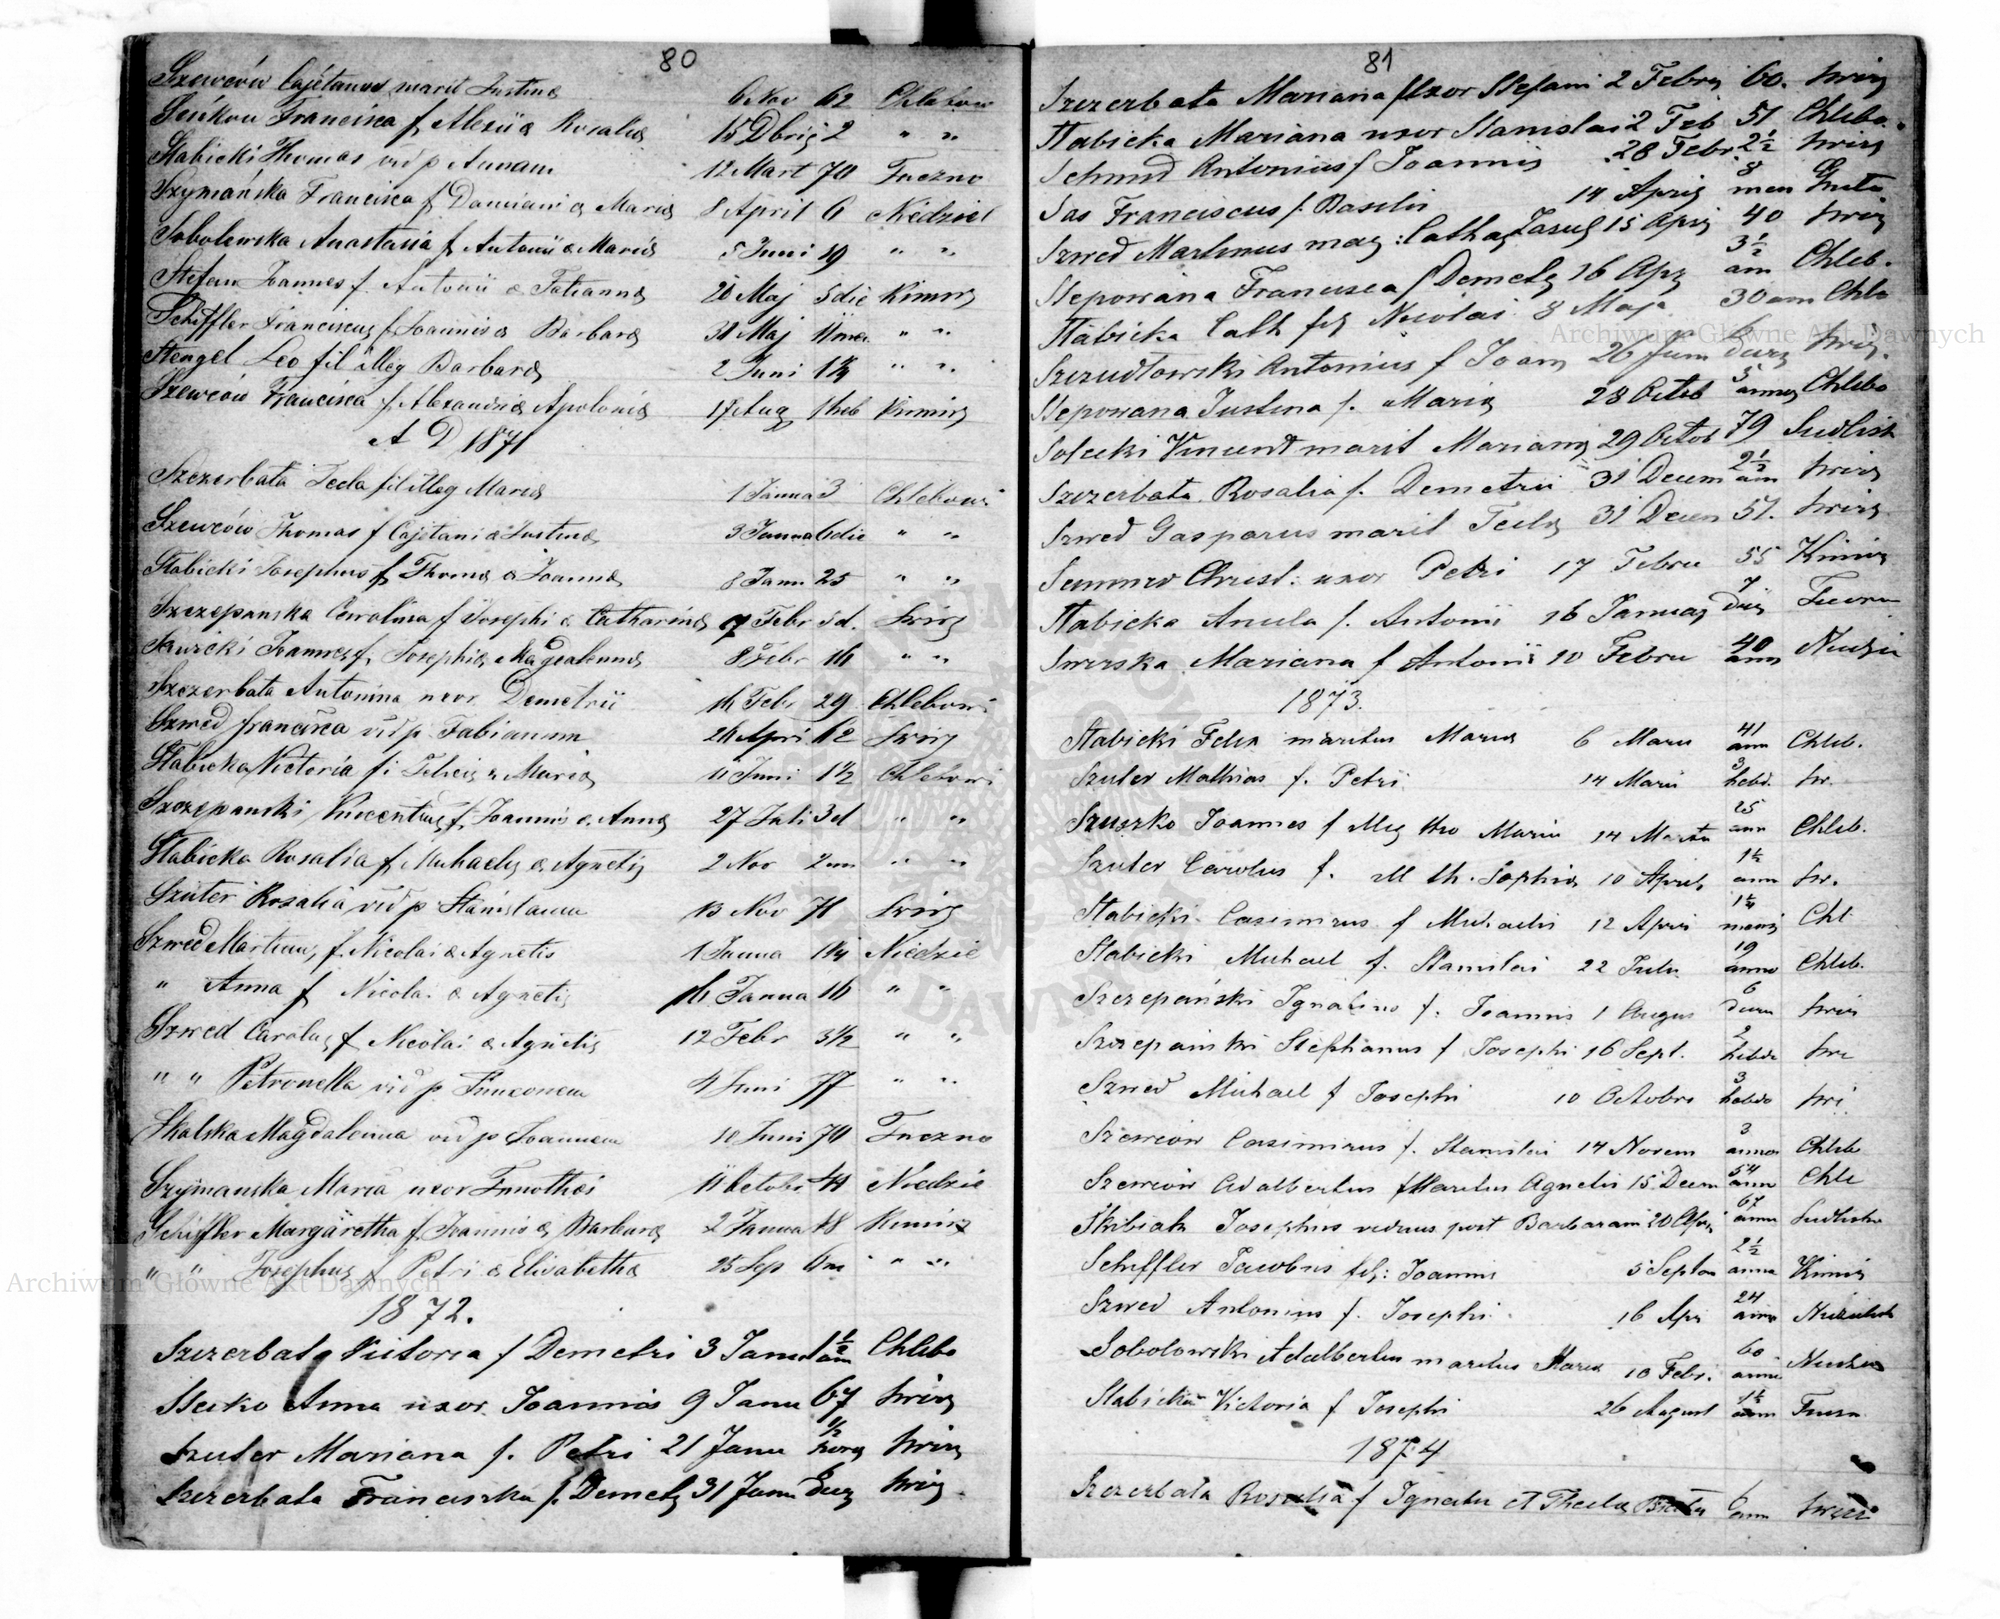 80
Szewców Cajetanus marit Justinæ 6 Nov 62 Chlebow
Francisca f Alexii & Rosaliæ 15 Dbris 2 " "
Stabicki Thomas vid p Annam 12 Mart 70 Tuczno
Szymańska Francisca f Damiani & Mariæ 8 April 6 Niedziel
Sobolewska Anastasia f Antonii & Mariæ 5 Juni 19 " "
Stefan Joannes f. Antonii & Tatiannæ 20 Maj 5 die Kimirz
Schiffler Franciscus f. Joannis & Barbaræ 31 Maj 11 " "
Stengel Leo fil illeg Barbaræ 2 Juni " "
Szewców Francisca f. Alexandri & Apoloniæ 17 Aug 1 heb Kimirz
A D 1871
Szczerbata Tecla fil illeg Mariæ 1 Janua 3 Chlebowi
Szewców Thomas f Cajetani & Justinæ 3 Janua 6 die " "
Stabicki Josephus f Thomæ & Joannæ 8 Janu 25 " "
Szczepanska Carolina f Josephi & Catharinæ 7 Febr 5 d. Swirz
Joannes f. Josephi & Magdalenæ 8 Febr 16 " "
Szczerbata Antonina uxor Demetrii 16 Febr 29 Chlebowi
Szwed francisca vid p Fabianum 26 Apri 62 Swirz
Stabicka Victoria f: Felicis & Mariæ 11 Juni 1½ Chlebowi
Szczepanski Vincentius f. Joannis & Annæ 27 Juli 3 d " "
Stabicka Rosalia f Michaelis & Agnetis 2 Nov 2 m " "
Szuter Rosalia vid p Stanislaum 13 Nov 71 Swirz
Szwed Martinus f. Nicolai & Agnetis 1 Janua 1¼ Niedzie
" Anna f Nicolai & Agnetis 16 Janua 16 " "
Szwed Carolus f Nicolai & Agnetis 12 Febr 3½ " "
" " Petronella vid p Simeonem 4 Juni 77 " "
Skalska Magdalenna vid p Joannem 10 Juni 70 Tuczno
Szymanska Maria uxor Timothei 11 Octobr 44 Niedzie
Schiffler Margaretha f. Joannis & Barbaræ 2 Janua 18 Kimirz
" " Josephus f Petri & Elisabethæ 25 Sep 6 m " "
1872.
Szczerbata Victoria f Demetri 3 Janu 1½ an Chlebo
Stecko Anna uxor Joannis 9 Janu 67 Swirz
Szuter Mariana f. Petri 21 Janu ½ hora Swirz
Szczerbata Franciszka f. Demetr 31 Janu dies Swirz
81
Szczerbata Mariana Uxor Stefani 2 Febru 60. Swirz
Stabicka Mariana uxor Stanislai 2 Feb 51 Chlebo.
Schmid Antonius f Joannis 28 Febr. 2½ Swirz
Sas Franciscus f. Basilii 14 Aprig 8 men
Szwed Martinus mag: Catha 15 Apri 40 Swirz
Steposzana Francisca f Demet 16 Apr 3½ an Chleb.
Stabicka Cath Nicolai 8 Maja 30 ann Chlo
Szczudłowski Antonius f Joan 26 Juni 6 dierz Swirz.
Justina f. Maria 28 Octob 5 annus Chlebo
Solecki Vincent marit Mariann 29 Octob 79 Sudlisk
Szczerbata Rosalia f. Demetrii 31 Decem 2½ an Swirz
Szwed Gasparus marit Teclæ 31 Decem 51. Swirz
Christ: uxor Petri 17 Febru 55 Kimirz
Stabicka Anula f. Antonii 16 Januar 7 die
Mariana f Antonii 10 Febru 40 ann Niedzie
1873.
Stabicki Felix maritus Mariæ 6 Marti 41 ann Chleb.
Szuter Mathias f. Petri 14 Marti 3 hebd. Sw.
Szuszko Joannes f Illeg thro Mariæ 14 Marti 25 ann Chleb.
Szuter Carolus f. Ill th. Sophiæ 10 Aprili 1½ ann Sw.
Stabicki Casimirus f Michaelis 12 Apri 1½ mensi Chl
Stabicki Michael f. Stanislai 22 Julii 19 anno Chleb.
Szczepański Ignatius f. Joannis 1 Augus 6 dieru Swirz
Szczepański Stephanus f Josephi 16 Sept. 2 hebdo Swi
Szwed Michael f Josephi 10 Octobri 3 hebdo Swi
Szewców Casimirus f. Stanislai 14 Novem 3 annos Chleb
Szewców Adalbertus Maritus Agnetis 15 Decem 54 ann Chle
Skibiak Josephus viduus post Barbaram 20 Apri 67 anni Sudlisko
Schiffler Jacobus fil: Joannis 5 Septem 2½ anno Kimirz
Szwed Antonius f. Josephi 16 Apr 24 anno
Sobolowski Adalbertus maritus Mariæ 10 Febr. 60 anni Niedzie
Stabicka Victoria f Josephi 26 August 1½ ann Tuczn
1874
Szczerbata Rosalia f Ignatii et Theclæ 6 ann Swirz
Archiwum Główne Akt Dawnych
Archiwum Główne Akt Dawnych